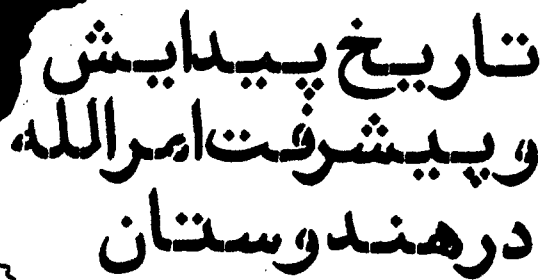 تاریخ پیدایش
و پیشرفت امرالله
در هندوستان